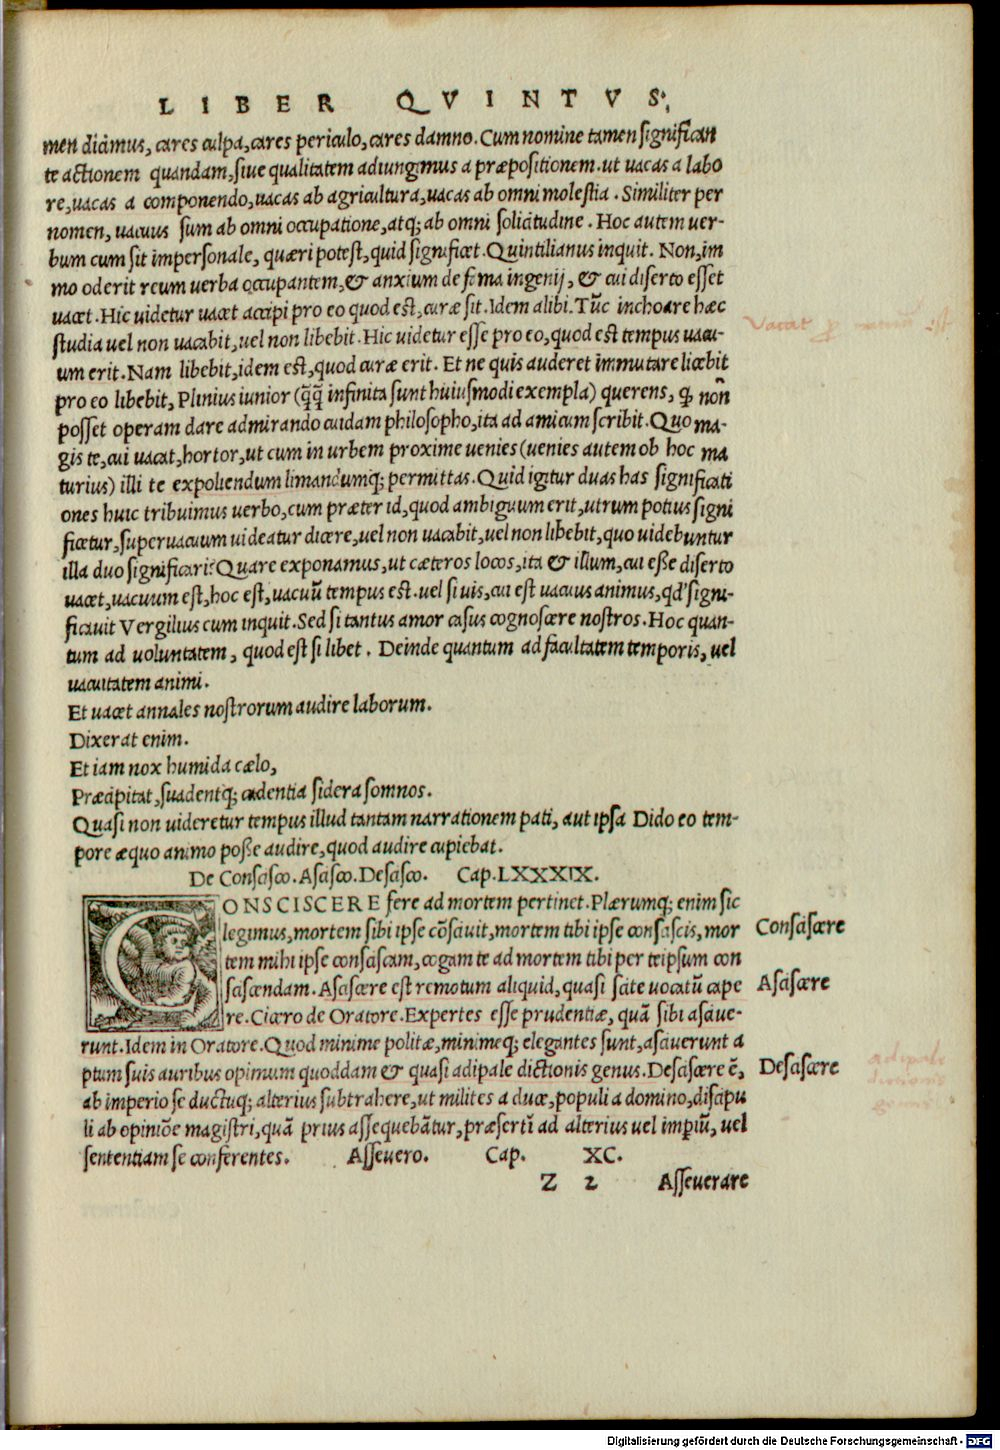 LIBER QVINTVS.
men dicimus, cares culpa, cares periculo, cares damno. Cum nomine tamen significan
te actionem quandam, siue qualitatem adiungimus a præpositionem. ut uacas a labo
re, uacas a componendo, uacas ab agricultura, uacas ab omni molestia. Similiter per
nomen, uacuus sum ab omni occupatione, atq; ab omni solicitudine. Hoc autem uer-
bum cum sit impersonale, quæri potest, quid significet. Quintilianus inquit. Non, im
mo oderit reum uerba occupantem, & anxium de fama ingenij, & cui diserto esset
uacet. Hic uidetur uacet accipi pro eo quod est, curæ sit. Idem alibi. Tũc inchoare hæc
studia uel non uacabit, uel non libebit. Hic uidetur esse pro eo, quod est tempus uacu-
um erit. Nam libebit, idem est, quod curæ erit. Et ne quis auderet immutare licebit
pro eo libebit, Plinius iunior (q̃q̃ infinita sunt huiusmodi exempla) querens, ꝙ non
posset operam dare admirando cuidam philosopho, ita ad amicum scribit. Quo ma-
gis te, cui uacat, hortor, ut cum in urbem proxime uenies (uenies autem ob hoc ma
turius) illi te expoliendum limandumq; permittas. Quid igitur duas has significati
ones huic tribuimus uerbo, cum præter id, quod ambiguum erit, utrum potius signi
ficetur, superuacuum uideatur dicere, uel non uacabit, uel non libebit, quo uidebuntur
illa duo significari? Quare exponamus, ut cæteros locos, ita & illum, cui esse diserto
uacet, uacuum est, hoc est, uacuũ tempus est. uel si uis, cui est uacuus animus, qd' signi-
ficauit Vergilius cum inquit. Sed si tantus amor casus cognoscere nostros. Hoc quan-
tum ad uoluntatem, quod est si libet. Deinde quantum ad facultatem temporis, uel
uacuitatem animi.
Et uacet annales nostrorum audire laborum.
Dixerat enim.
Et iam nox humida cælo,
Præcipitat, suadentq; cadentia sidera somnos.
Quasi non uideretur tempus illud tantam narrationem pati, aut ipsa Dido eo tem-
pore æquo animo posse audire, quod audire cupiebat.
De Conscisco. Ascisco. Descisco. Cap. LXXXIX.
CONSCISCERE fere ad mortem pertinet. Plærumq; enim sic
legimus, mortem sibi ipse cõsciuit, mortem tibi ipse consciscis, mor
tem mihi ipse consciscam, cogam te ad mortem tibi per teipsum con
sciscendam. Asciscere est remotum aliquid, quasi scite uocatũ cape
re. Cicero de Oratore. Expertes esse prudentiæ, quã sibi asciue-
runt. Idem in Oratore. Quod minime politæ, minimeq; elegantes sunt, asciuerunt a
ptum suis auribus opimum quoddam & quasi adipale dictionis genus. Desciscere ẽ,
ab imperio se ductuq; alterius subtrahere, ut milites a duce, populi a domino, discipu
li ab opiniõe magistri, quã prius assequebãtur, præsertĩ ad alterius uel imperiũ, uel
sententiam se conferentes. Asseuero. Cap. XC.
Z 2 Asseuerare
Vacat
Consciscere
Asciscere
Desciscere
adipale
dictionis
genus
Digitalisierung gefördert durch die Deutsche Forschungsgemeinschaft - DFG